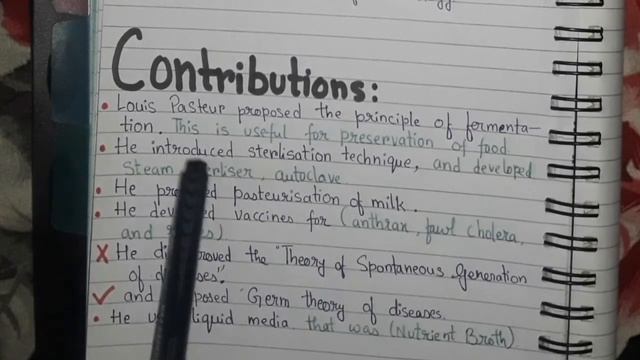 Contributions:
• Louis Pasteur proposed the principle of fermenta-
tion. This is useful for preservation of food
• He introduced sterlisation technique, and developed
Steam autoclave
• He pasteurisation of milk.
• He vaccines for (anthrax, fowl cholera,
and
X He the "Theory of Spontaneous Generation
of
✓ and "Germ theory of diseases.
• He liquid media that was (Nutrient Broth)